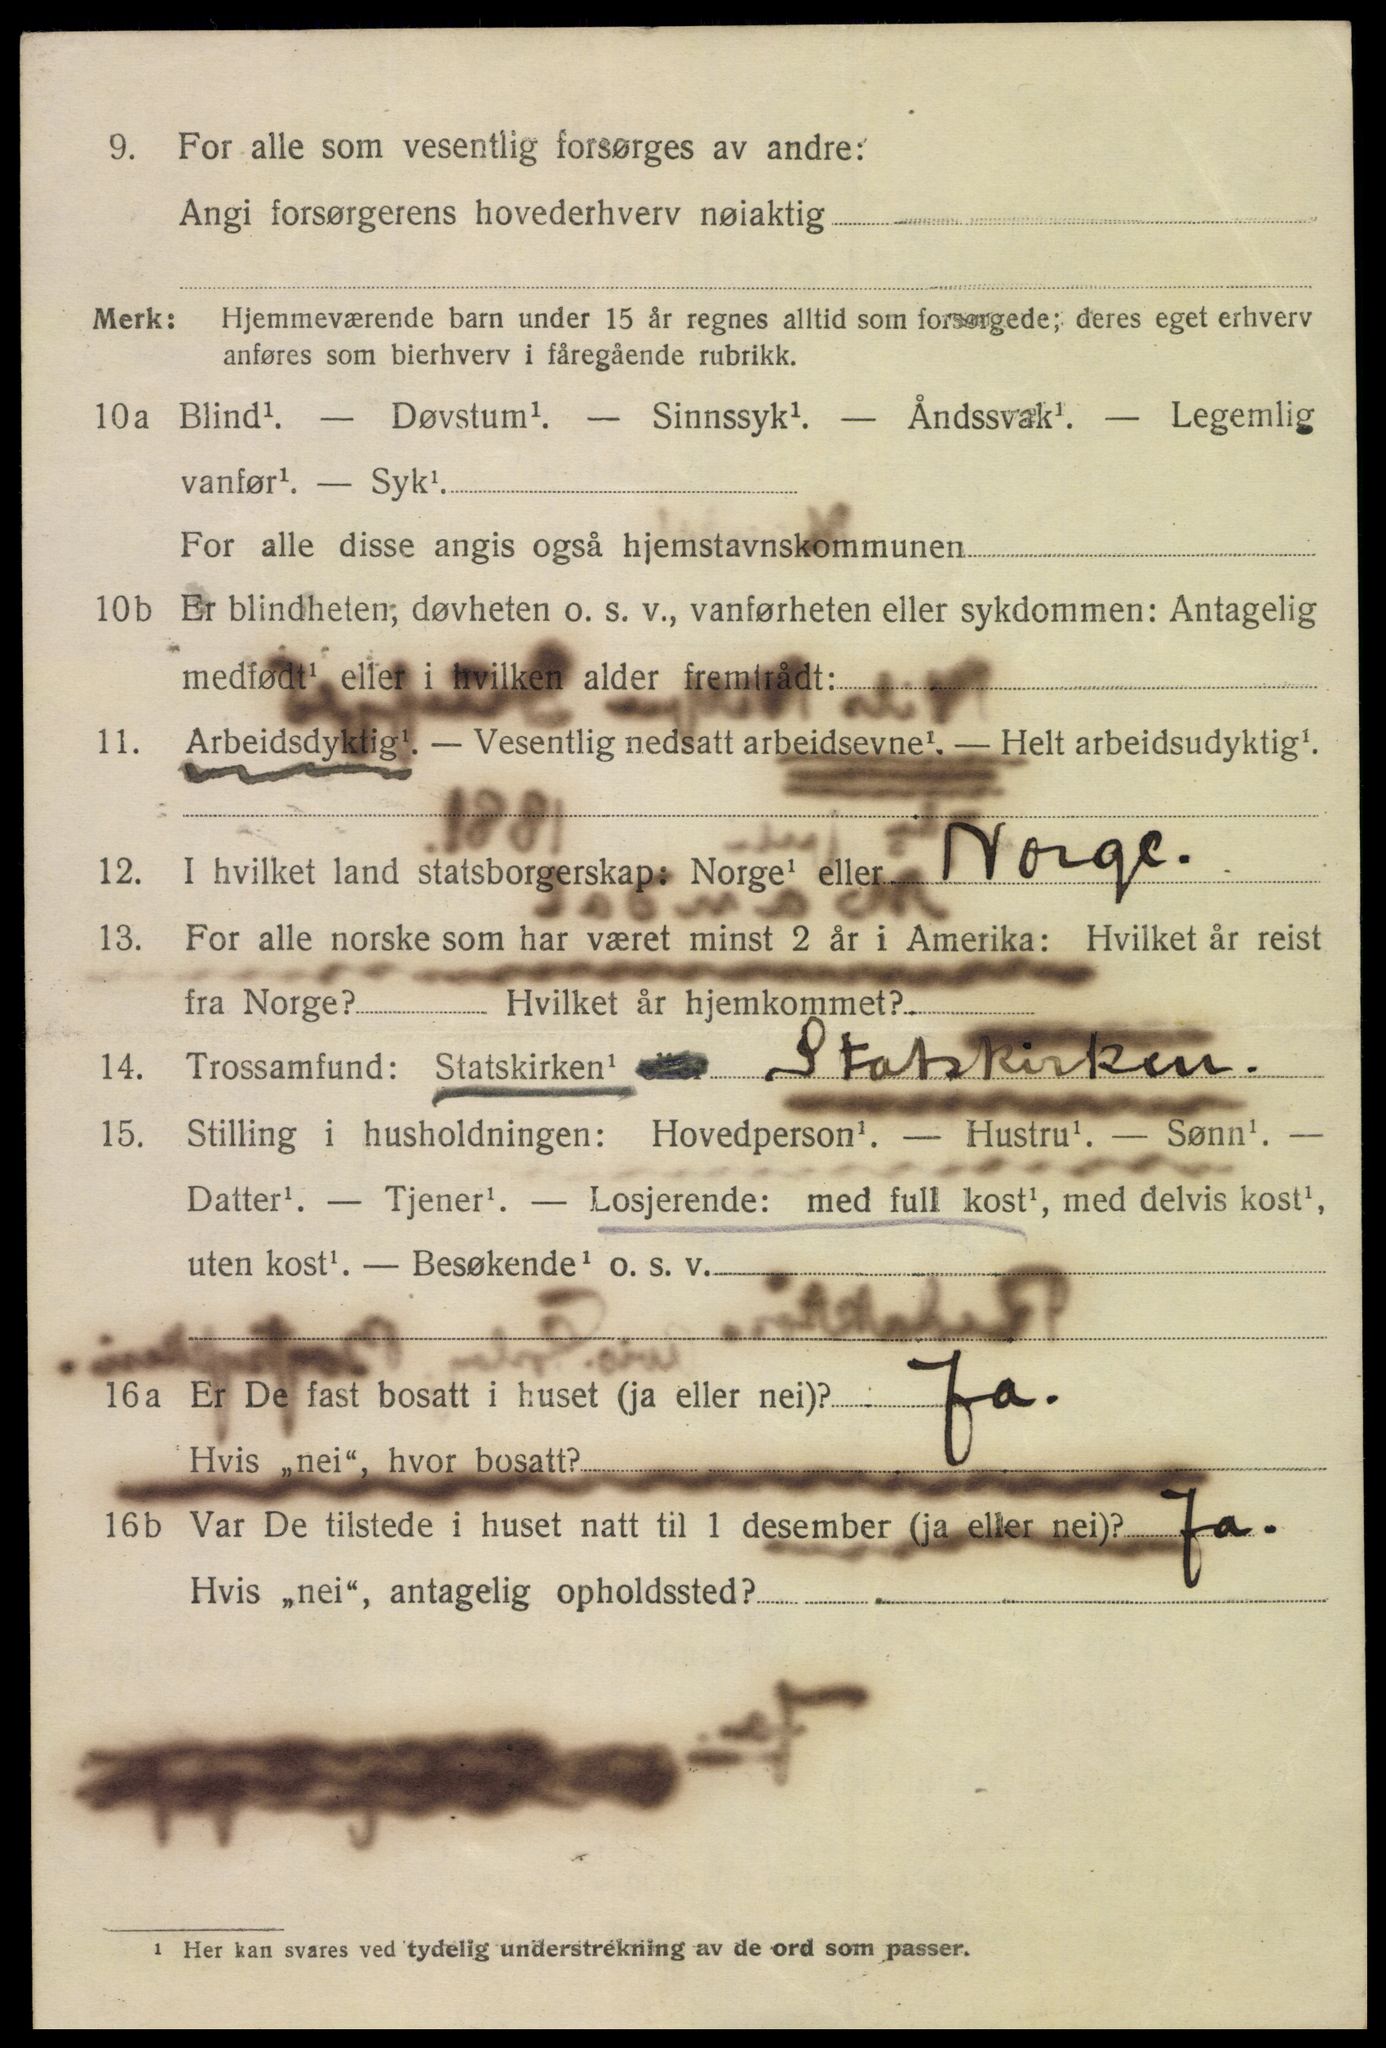 9. For alle som vesentlig forsørges av andre:
Angi forsørgerens hovederhverv nøiaktig
Merk: Hjemmeværende barn under 15 år regnes alltid som forsørgede; deres eget erhverv
anføres som bierhverv i fåregående rubrikk.
10a Blind¹. — Døvstum¹. — Sinnssyk¹. — Åndssvak¹. — Legemlig
vanfør¹. — Syk¹.
For alle disse angis også hjemstavnskommunen
10b Er blindheten, døvheten o. s. v., vanførheten eller sykdommen: Antagelig
medfødt¹ eller i hvilken alder fremtrådt:
11. Arbeidsdyktig¹. — Vesentlig nedsatt arbeidsevne¹. — Helt arbeidsudyktig¹.
12. I hvilket land statsborgerskap: Norge¹ eller Norge.
13. For alle norske som har været minst 2 år i Amerika: Hvilket år reist
fra Norge? Hvilket år hjemkommet?
14. Trossamfund: Statskirken¹ eller Statskirken.
15. Stilling i husholdningen: Hovedperson¹. — Hustru¹. — Sønn¹. —
Datter¹. — Tjener¹. — Losjerende: med full kost¹, med delvis kost¹,
uten kost¹. — Besøkende¹ o. s. v.
16a Er De fast bosatt i huset (ja eller nei)? Ja.
Hvis „nei“, hvor bosatt?
16b Var De tilstede i huset natt til 1 desember (ja eller nei)? Ja.
Hvis „nei“, antagelig opholdssted?
¹ Her kan svares ved tydelig understrekning av de ord som passer.